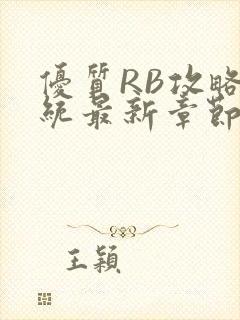 優質RB攻略
統最新章節
王穎